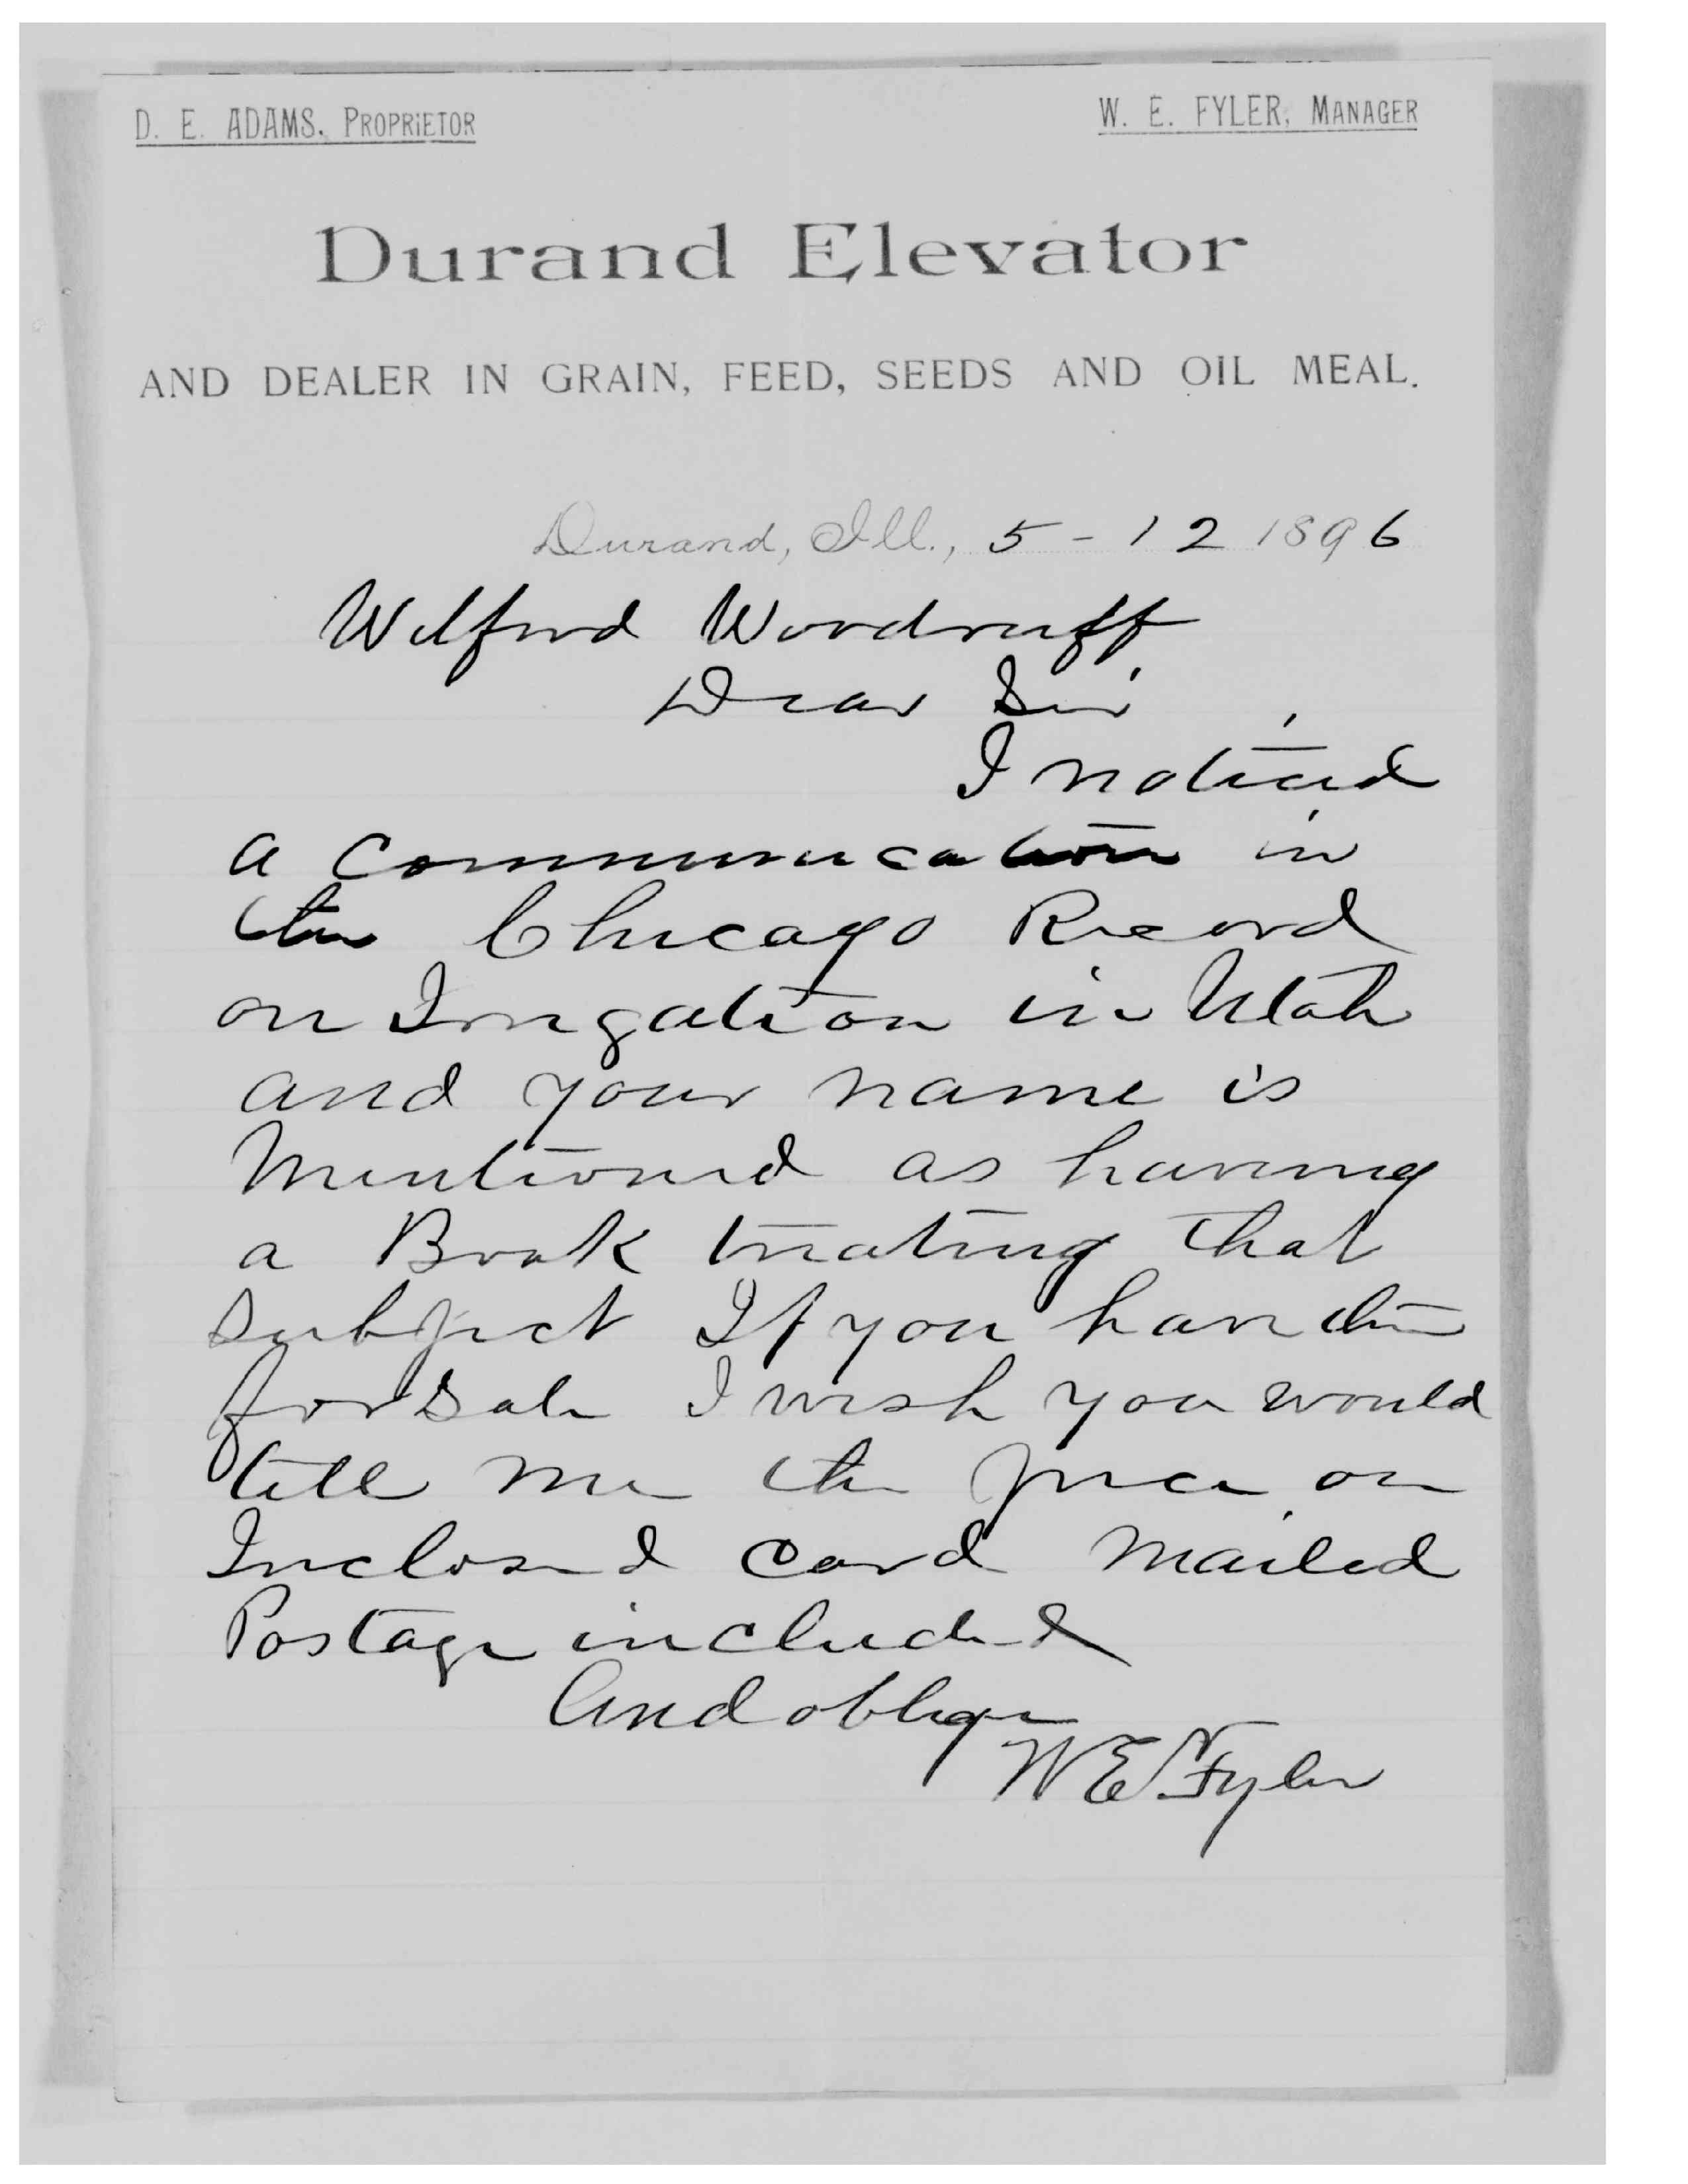 D. E. ADAMS, PROPRIETOR
W. E. FYLER, MANAGER
Durand Elevator
AND DEALER IN GRAIN, FEED, SEEDS AND OIL MEAL.
Durand, Ill., 5-12 1896
Wilford Woodruff
Dear Sir
I noticed
a Communication in
the Chicago Record
on Irrigation in Utah
and your name is
Mentioned as having
a Book treating that
subject If you have
for Sale I wish you would
tell me the price on
Inclosed Card Mailed
Postage included
And oblige
W E Fyler